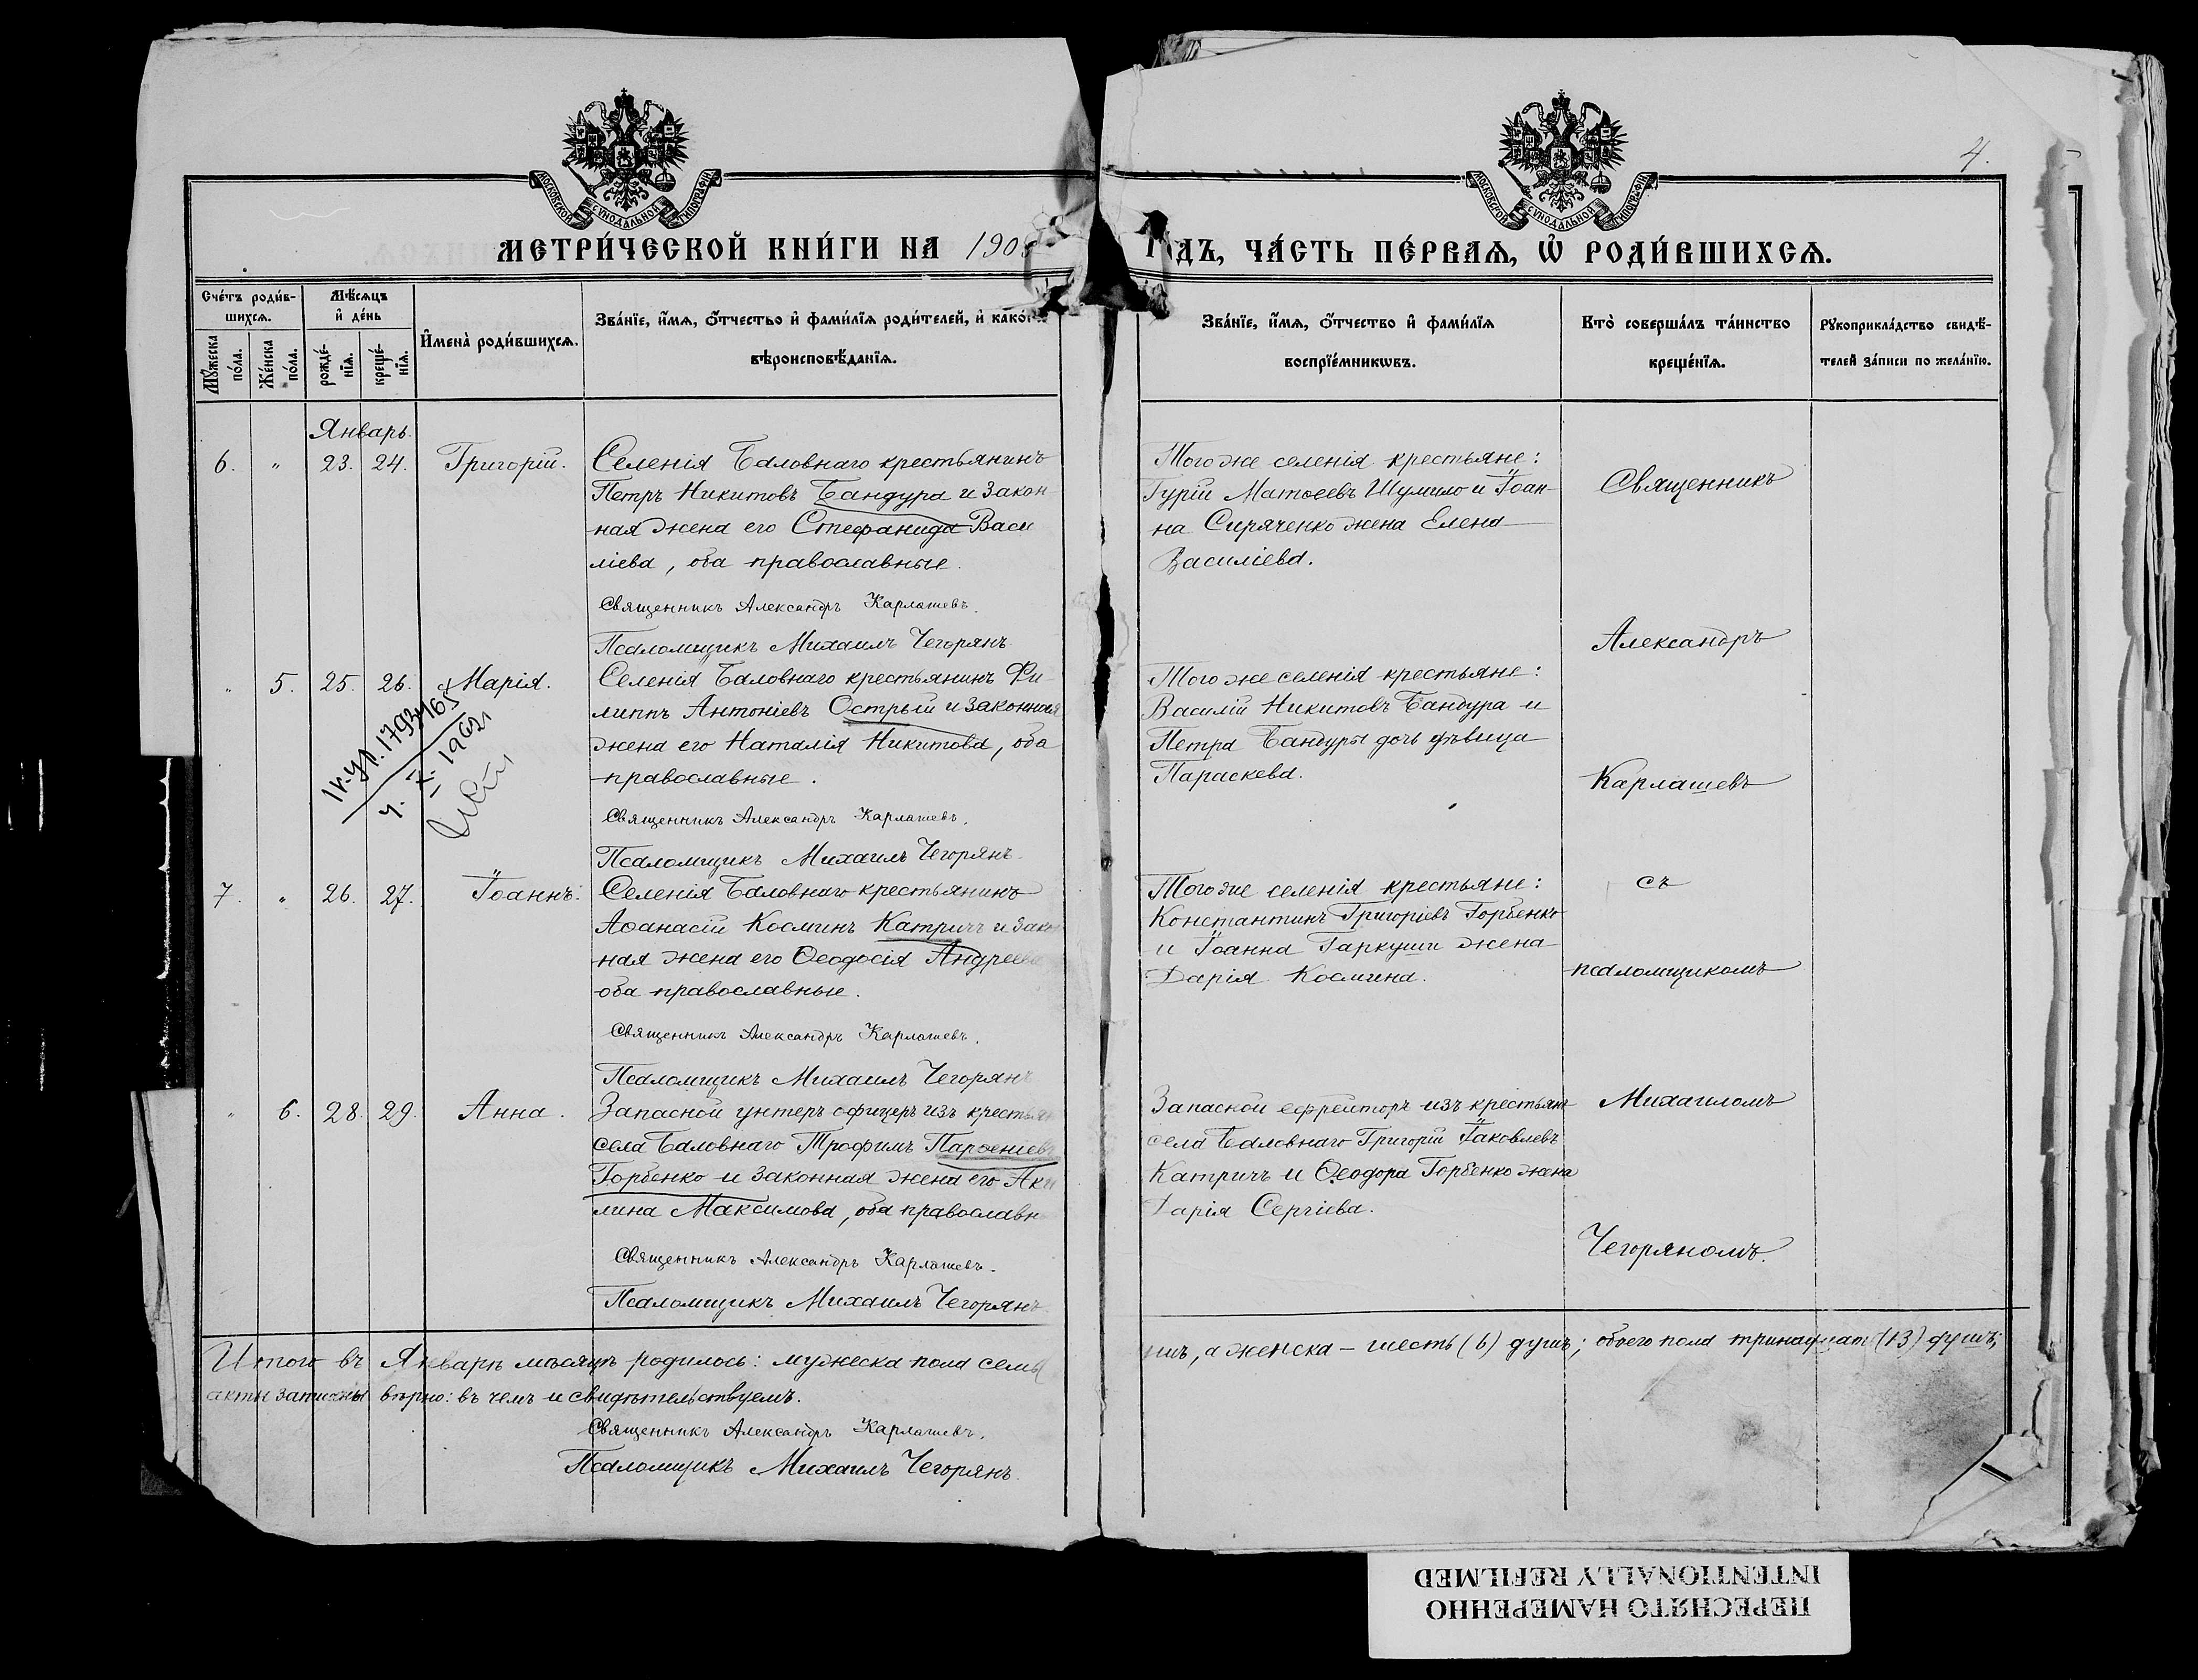 4.
МОСКОВСКОЙ СѴНОДАЛЬНОЙ ТИПОГРАФІИ
МОСКОВСКОЙ СѴНОДАЛЬНОЙ ТИПОГРАФІИ
МЕТРИ́ЧЕСКОЙ КНИ́ГИ НА 190
ДЪ, ЧА́СТЬ ПЕ́РВАѦ, Ѡ҆ РОДИ́ВШИХСѦ.
Сче́тъ роди́в-
шихсѧ.
Мꙋ́жеска по́ла.
Же́нска по́ла.
Мѣ́сѧцъ
и҆ де́нь
рожде́-
нїѧ.
креще́-
нїѧ.
И҆мена̀ роди́вшихсѧ.
Зва́нїе, и҆́мѧ, ѻ҆́тчество и҆ фами́лїѧ роди́телей, и҆ како́гѡ
вѣроисповѣ́данїѧ.
Зва́нїе, и҆́мѧ, ѻ҆́тчество и҆ фами́лїѧ
воспрїе́мникѡвъ.
Кто̀ соверша́лъ та́инство
креще́нїѧ.
Рꙋкоприкла́дство свидѣ́-
телей за́писи по жела́нїю.
Январь.
6. " 23. 24. Григорій.
Селенія Баловнаго крестьянинъ
Петръ Никитовъ Бандура и закон-
ная жена его Стефанида Васи
ліева, оба православные.
Священникъ Александръ Карлашевъ.
Псаломщикъ Михаилъ Чегорянъ.
Того же селенія крестьяне:
Гурій Матѳеевъ Шумило и Іоан-
на Сиряченко жена Елена
Василіева.
" 5. 25. 26. Марія.
Селенія Баловнаго крестьянинъ Фи-
липпъ Антоніевъ Острый и законная
жена его Наталія Никитова, оба
православные.
Священникъ Александръ Карлашевъ.
Псаломщикъ Михаилъ Чегорянъ.
Того же селенія крестьяне:
Василій Никитовъ Бандура и
Петра Бандуры дочь дѣвица
Параскева.
7. " 26. 27. Іоаннъ.
Селенія Баловнаго крестьянинъ
Аѳанасій Косминъ Катричъ и зако
ная жена его Ѳеодосія Андреева
оба православные.
Священникъ Александръ Карлашевъ.
Псаломщикъ Михаилъ Чегорянъ
Того же селенія крестьяне:
Константинъ Григоріевъ Горбенко
и Іоанна Гаркуши жена
Дарія Космина.
" 6. 28. 29. Анна.
Запасной унтеръ офицеръ изъ крестьян
села Баловнаго Трофимъ Парѳеніевъ
Горбенко и законная жена его Аки
лина Максимова, оба православн
Священникъ Александръ Карлашевъ.
Псаломщикъ Михаилъ Чегорянъ.
Запасной ефрейторъ изъ крестьянъ
села Баловнаго Григорій Іаковлевъ
Катричъ и Ѳеодора Горбенко жена
Дарія Сергіева.
Священникъ
Александръ
Карлашевъ
съ
псаломщикомъ
Михаиломъ
Чегоряномъ.
Итого въ Январѣ мѣсяцѣ родилось: мужеска пола семь
шъ, а женска – шесть (6) душъ; обоего пола тринадцат (13) душъ;
акты записаны вѣрно: въ чемъ и свидѣтельствуемъ.
Священникъ Александръ Карлашевъ.
Псаломщикъ Михаилъ Чегорянъ.
ПЕРЕСНЯТО НАМЕРЕННО
INTENTIONALLY REFILMED